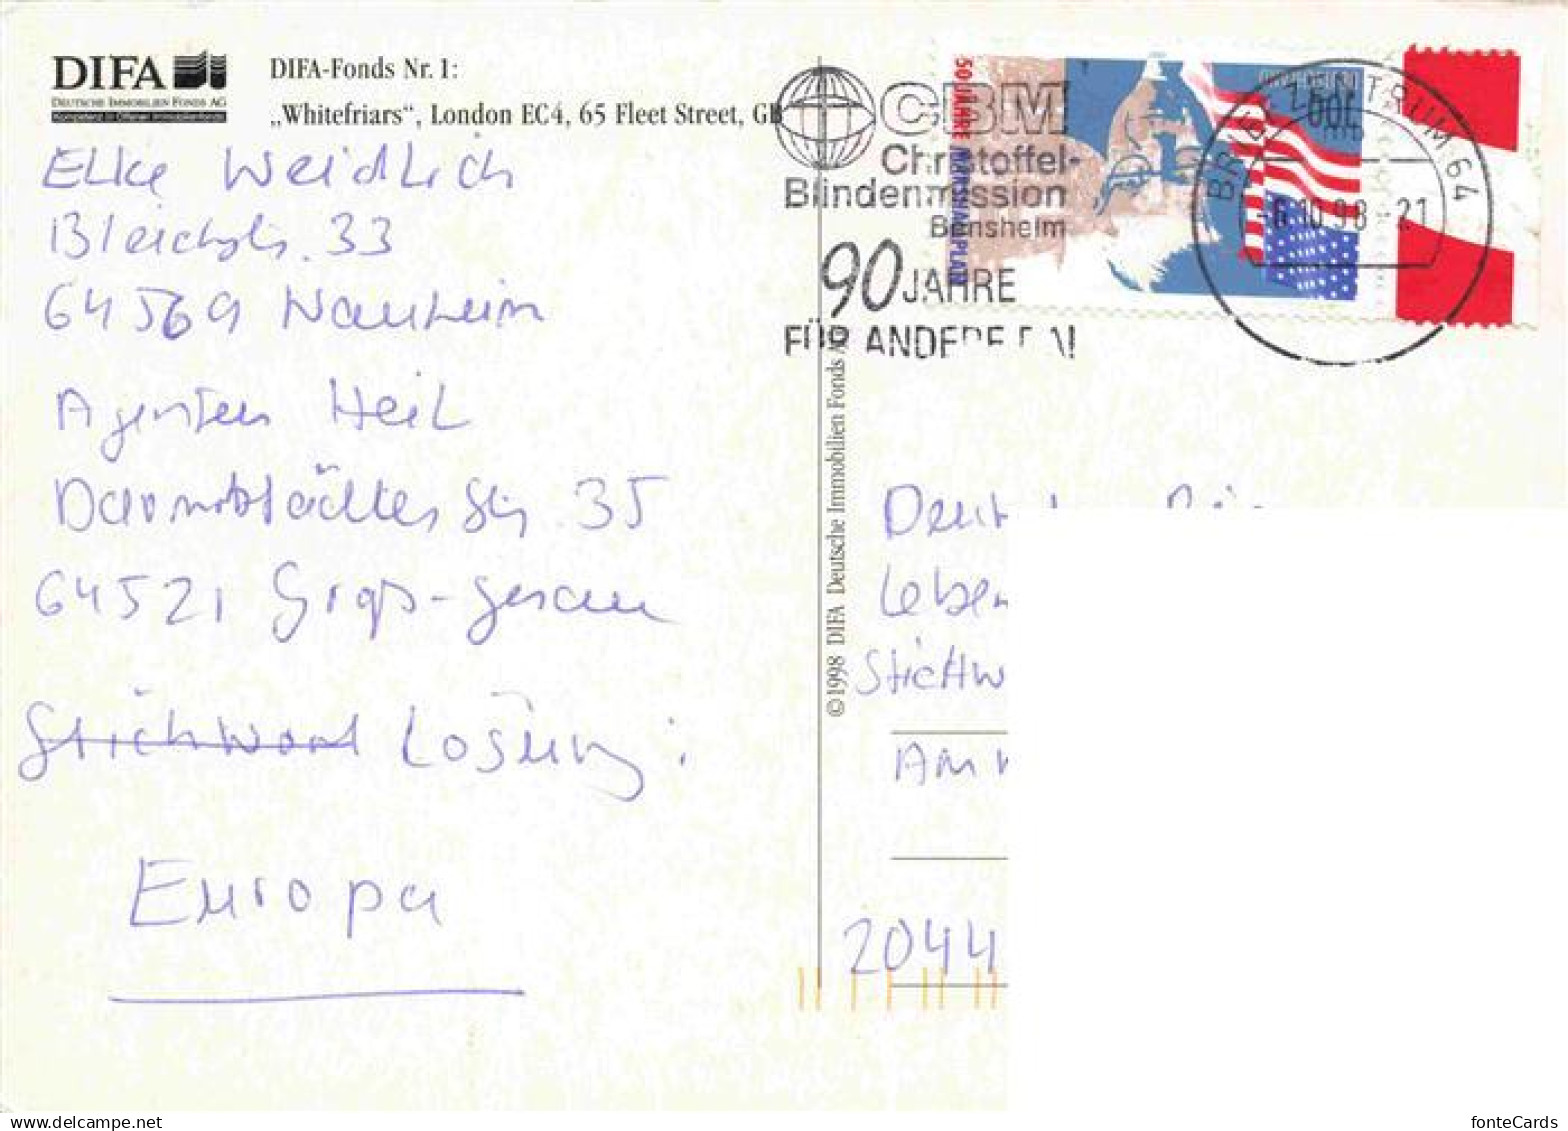 DIFA
DEUTSCHE IMMOBILIEN FONDS AG
Kompetenz in Offenen Immobilienfonds
DIFA-Fonds Nr. 1:
„Whitefriars“, London EC4, 65 Fleet Street, GB
Elke Weidlich
Bleichstr. 33
64569 Nauheim
Agentur Heil
Darmstädter Str. 35
64521 Groß-Gerau
Stichwort Lösung:
Europa
© 1998 DIFA Deutsche Immobilien Fonds
CBM
Christoffel-
Blindenmission
Bensheim
90 JAHRE
FÜR ANDERE DA!
50 JAHRE MARSHALLPLAN
BRIEFZENTRUM 64
-6.10.98-21
Leben
Stichw
Am
2044
fonteCards